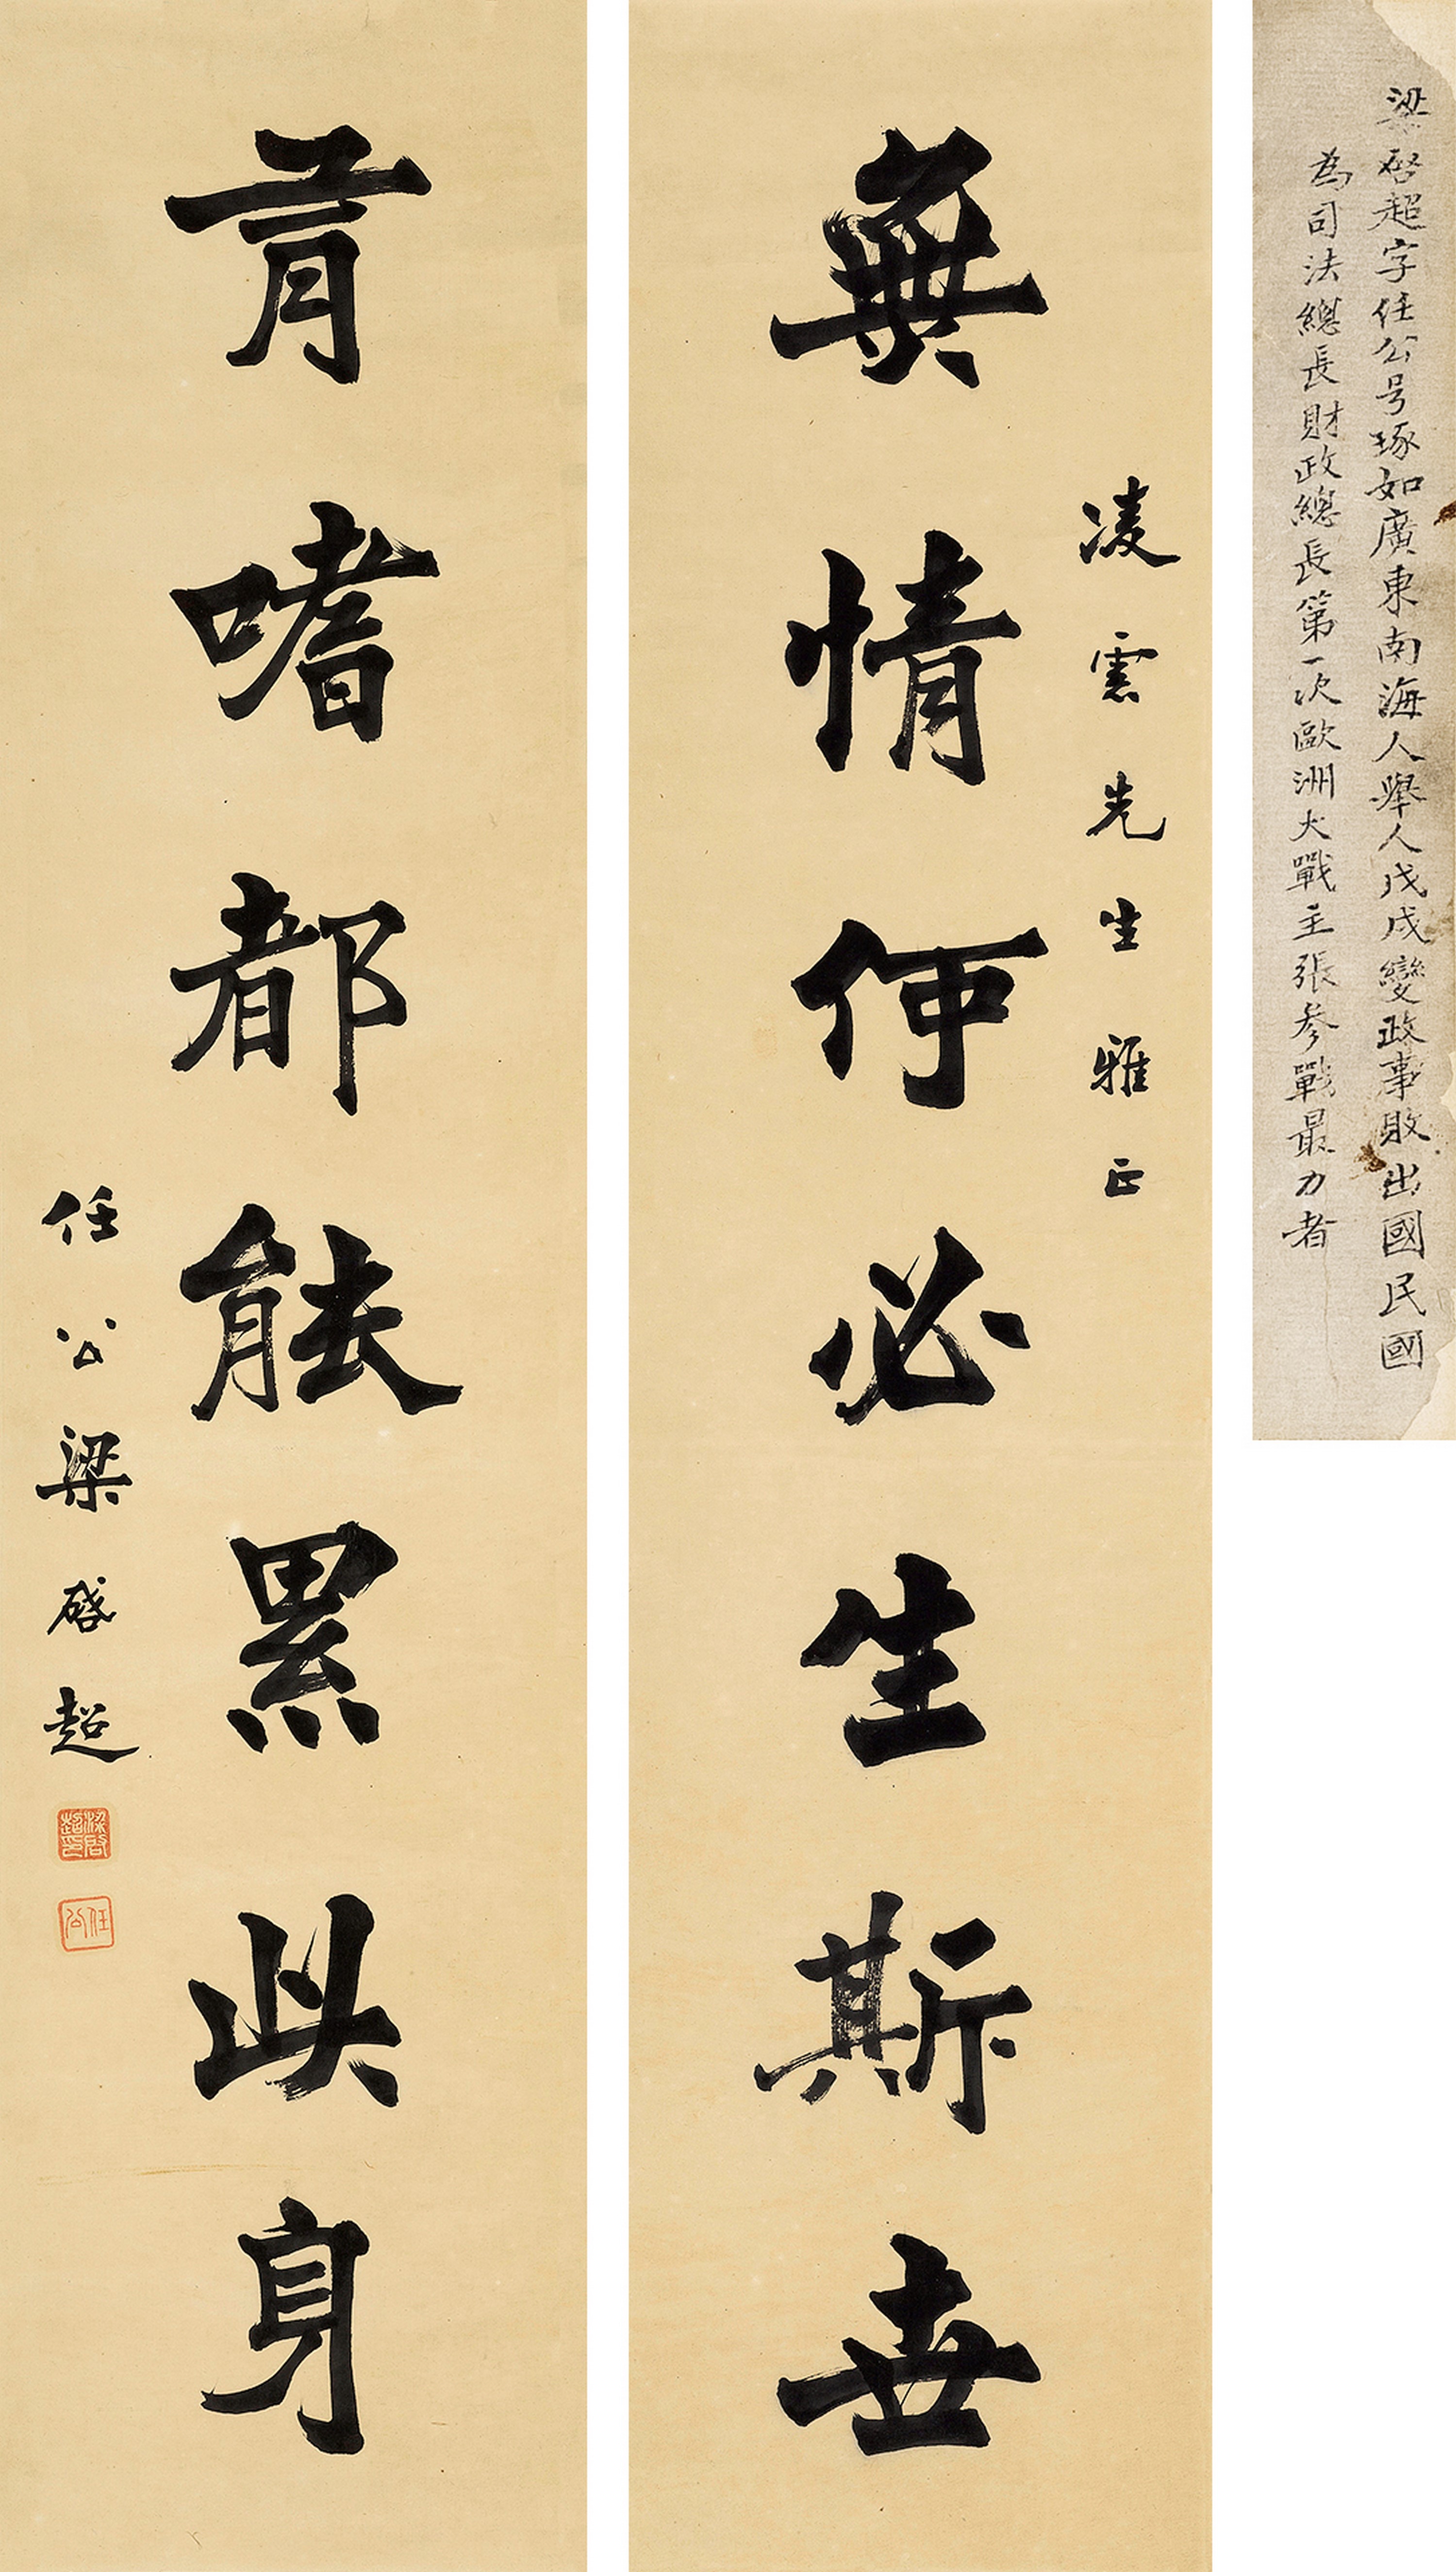 梁启超字任公号琢如廣東南海人舉人戊戌變政事敗出國民國
為司法總長財政總長第一次歐洲大戰主張參戰最力者
凌雲先生雅正
無情何必生斯世
有嗜都能累此身
任公梁啟超
梁啟超印
任公